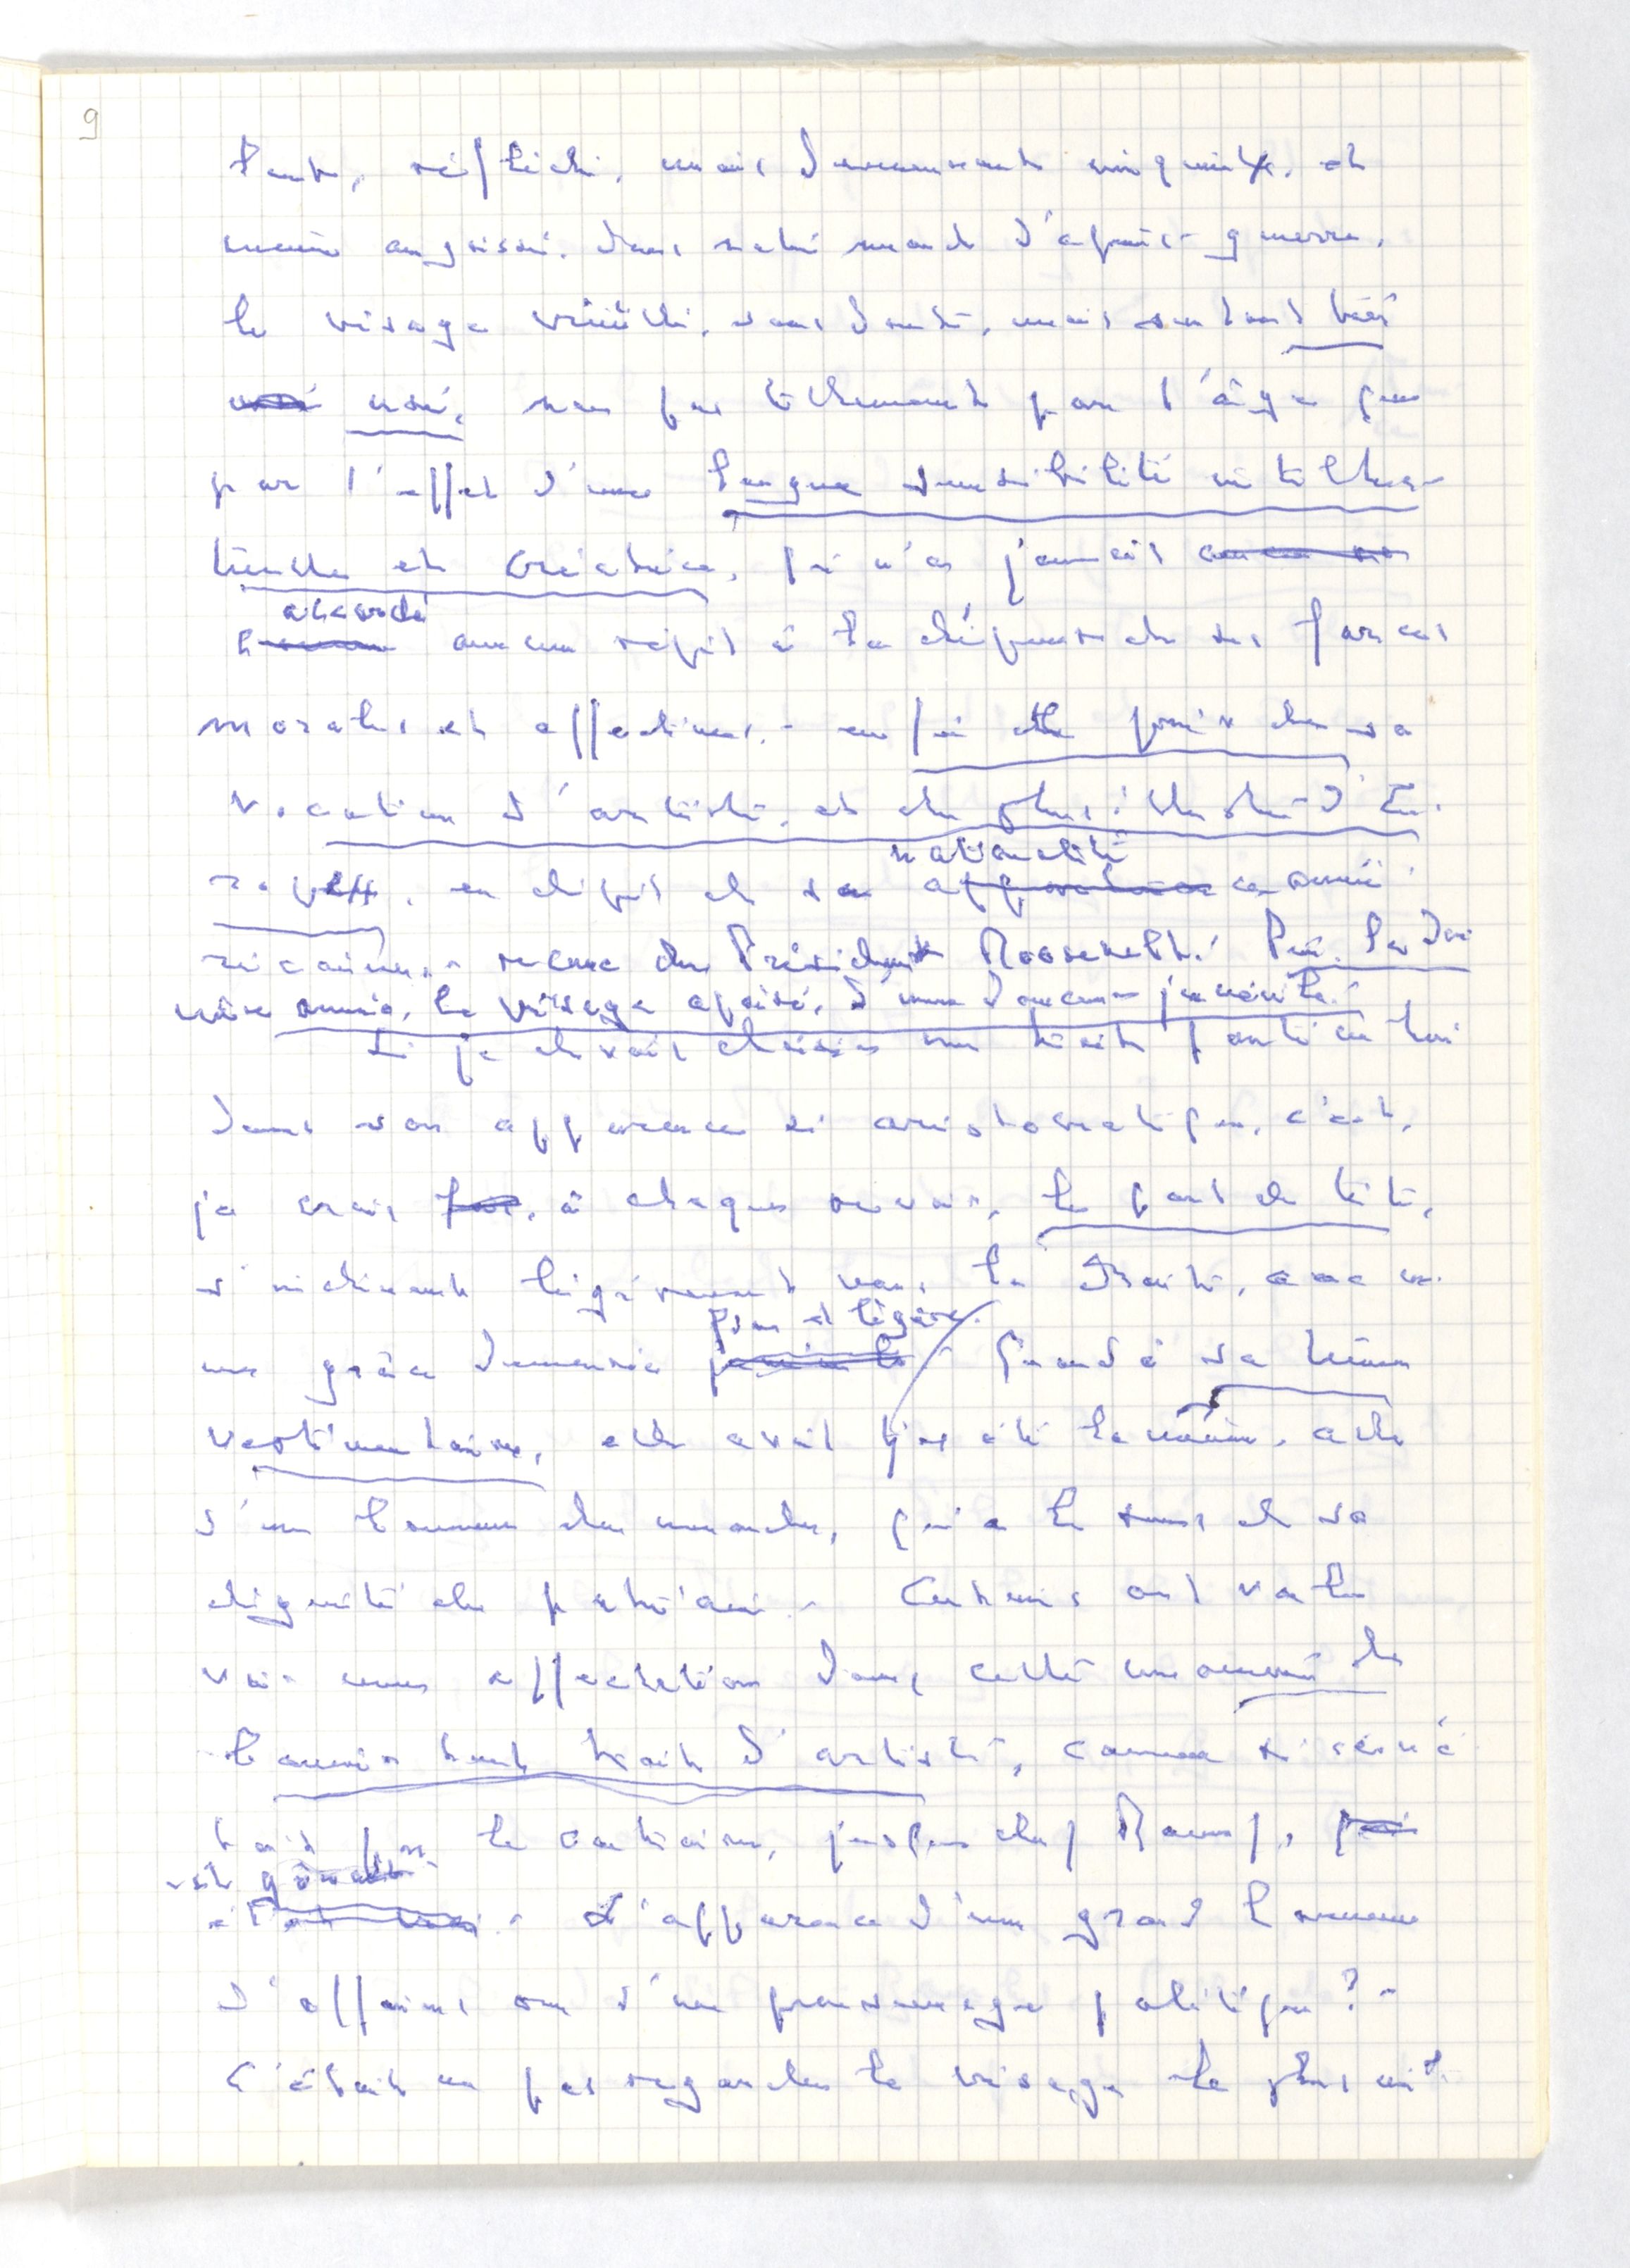 9
tent, réfléchi, mais demeurant inquiet, et
même angoissé, dans notre monde d'après-guerre.
le visage vieilli, sans doute, mais surtout très
usé, non pas tellement par l'âge que
par l'effet d'une longue sensibilité intellec-
tuelle et créatrice, qui n'a jamais
accordé
aucun répit à la dépense de ses forces
morales et affectives, - en fin de
vocation d'artiste, et de plus illustre d'Eu-
nationalité
rope, en dépit de sa amé-
ricaine, - reçue du Président Roosevelt. Puis, la der-
nière année, le visage apaisé, d'une douceur juvénile.
Si je devais choisir un trait particulier
dans son apparence si aristocratique, c'est,
je crois, à chaque revoir, le port de tête,
s'inclinant légèrement vers la droite, avec
fine et légère.
une grâce demeurée - Quant à sa tenue
vestimentaire, elle avait tjrs été la même, celle
d'un homme du monde, qui a le sens de sa
dignité de patricien. - Certains ont voulu
voir une affectation dans cette
trait d'artiste, comme si ce n'é-
tait pas le contraire, jusque chez Ramuz,
- L'apparence d'un grand homme
d'affaires ou d'un personnage politique? -
C'était ne pas regarder le visage le plus